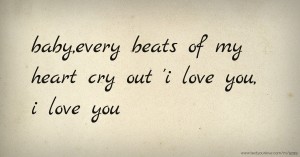 baby,every beats of my
heart cry out 'i love you,
i love you